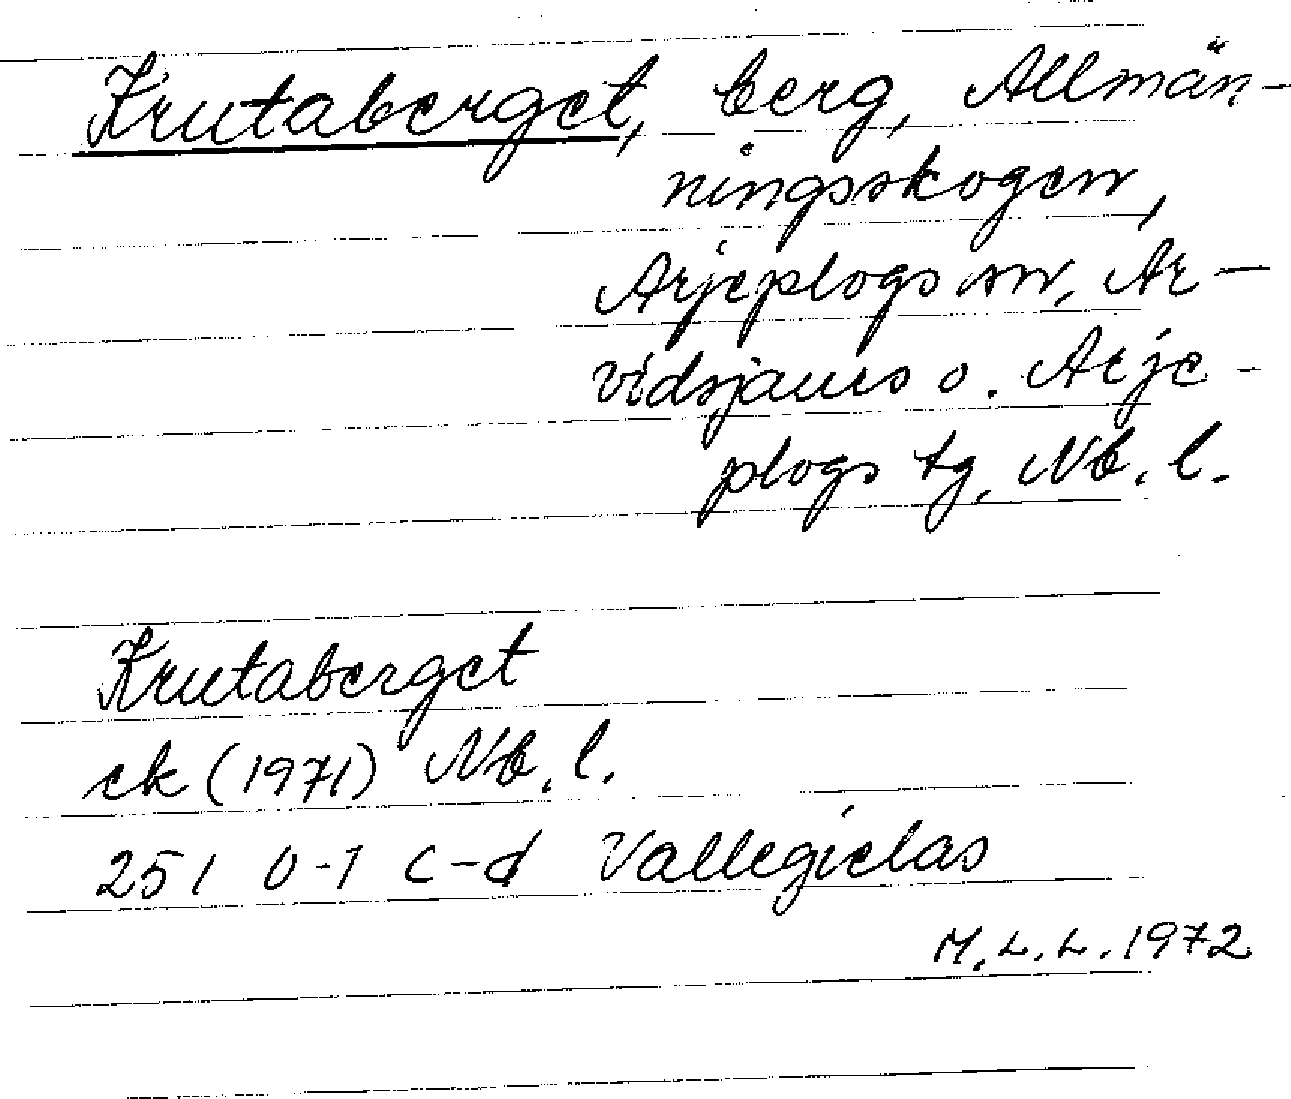 Krutaberget, berg, Allmän-
ningsskogen,
Arjeplogs sn, Ar-
vidsjaurs o. Arje-
plogs tg, Nb. l.
Krutaberget
ek (1971) Nb. l.
25 I 0-1 c-d Vallegielas
M.L.L. 1972